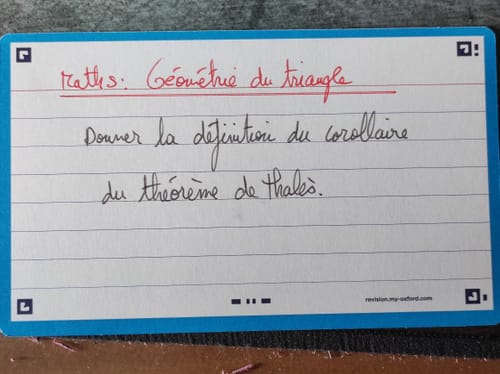 Maths: Géométrie du triangle
Donner la définition du corollaire
du théorème de thalès.
revision.my-oxford.com